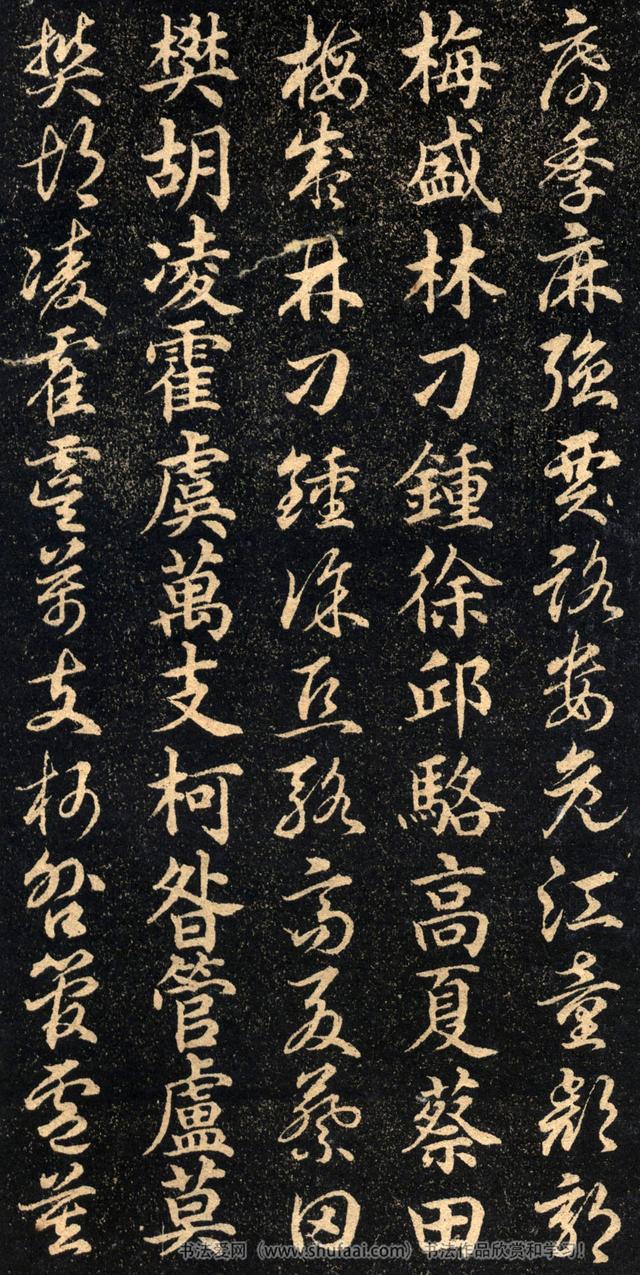 席季麻強賈路婁危江童顏郭
梅盛林刁鍾徐邱駱高夏蔡田
梅盛林刁鍾徐丘駱高夏蔡田
樊胡凌霍虞萬支柯昝管盧莫
樊胡凌霍虞萬支柯昝管盧莫
书法爱网（www.shufaai.com）书法作品欣赏和学习！